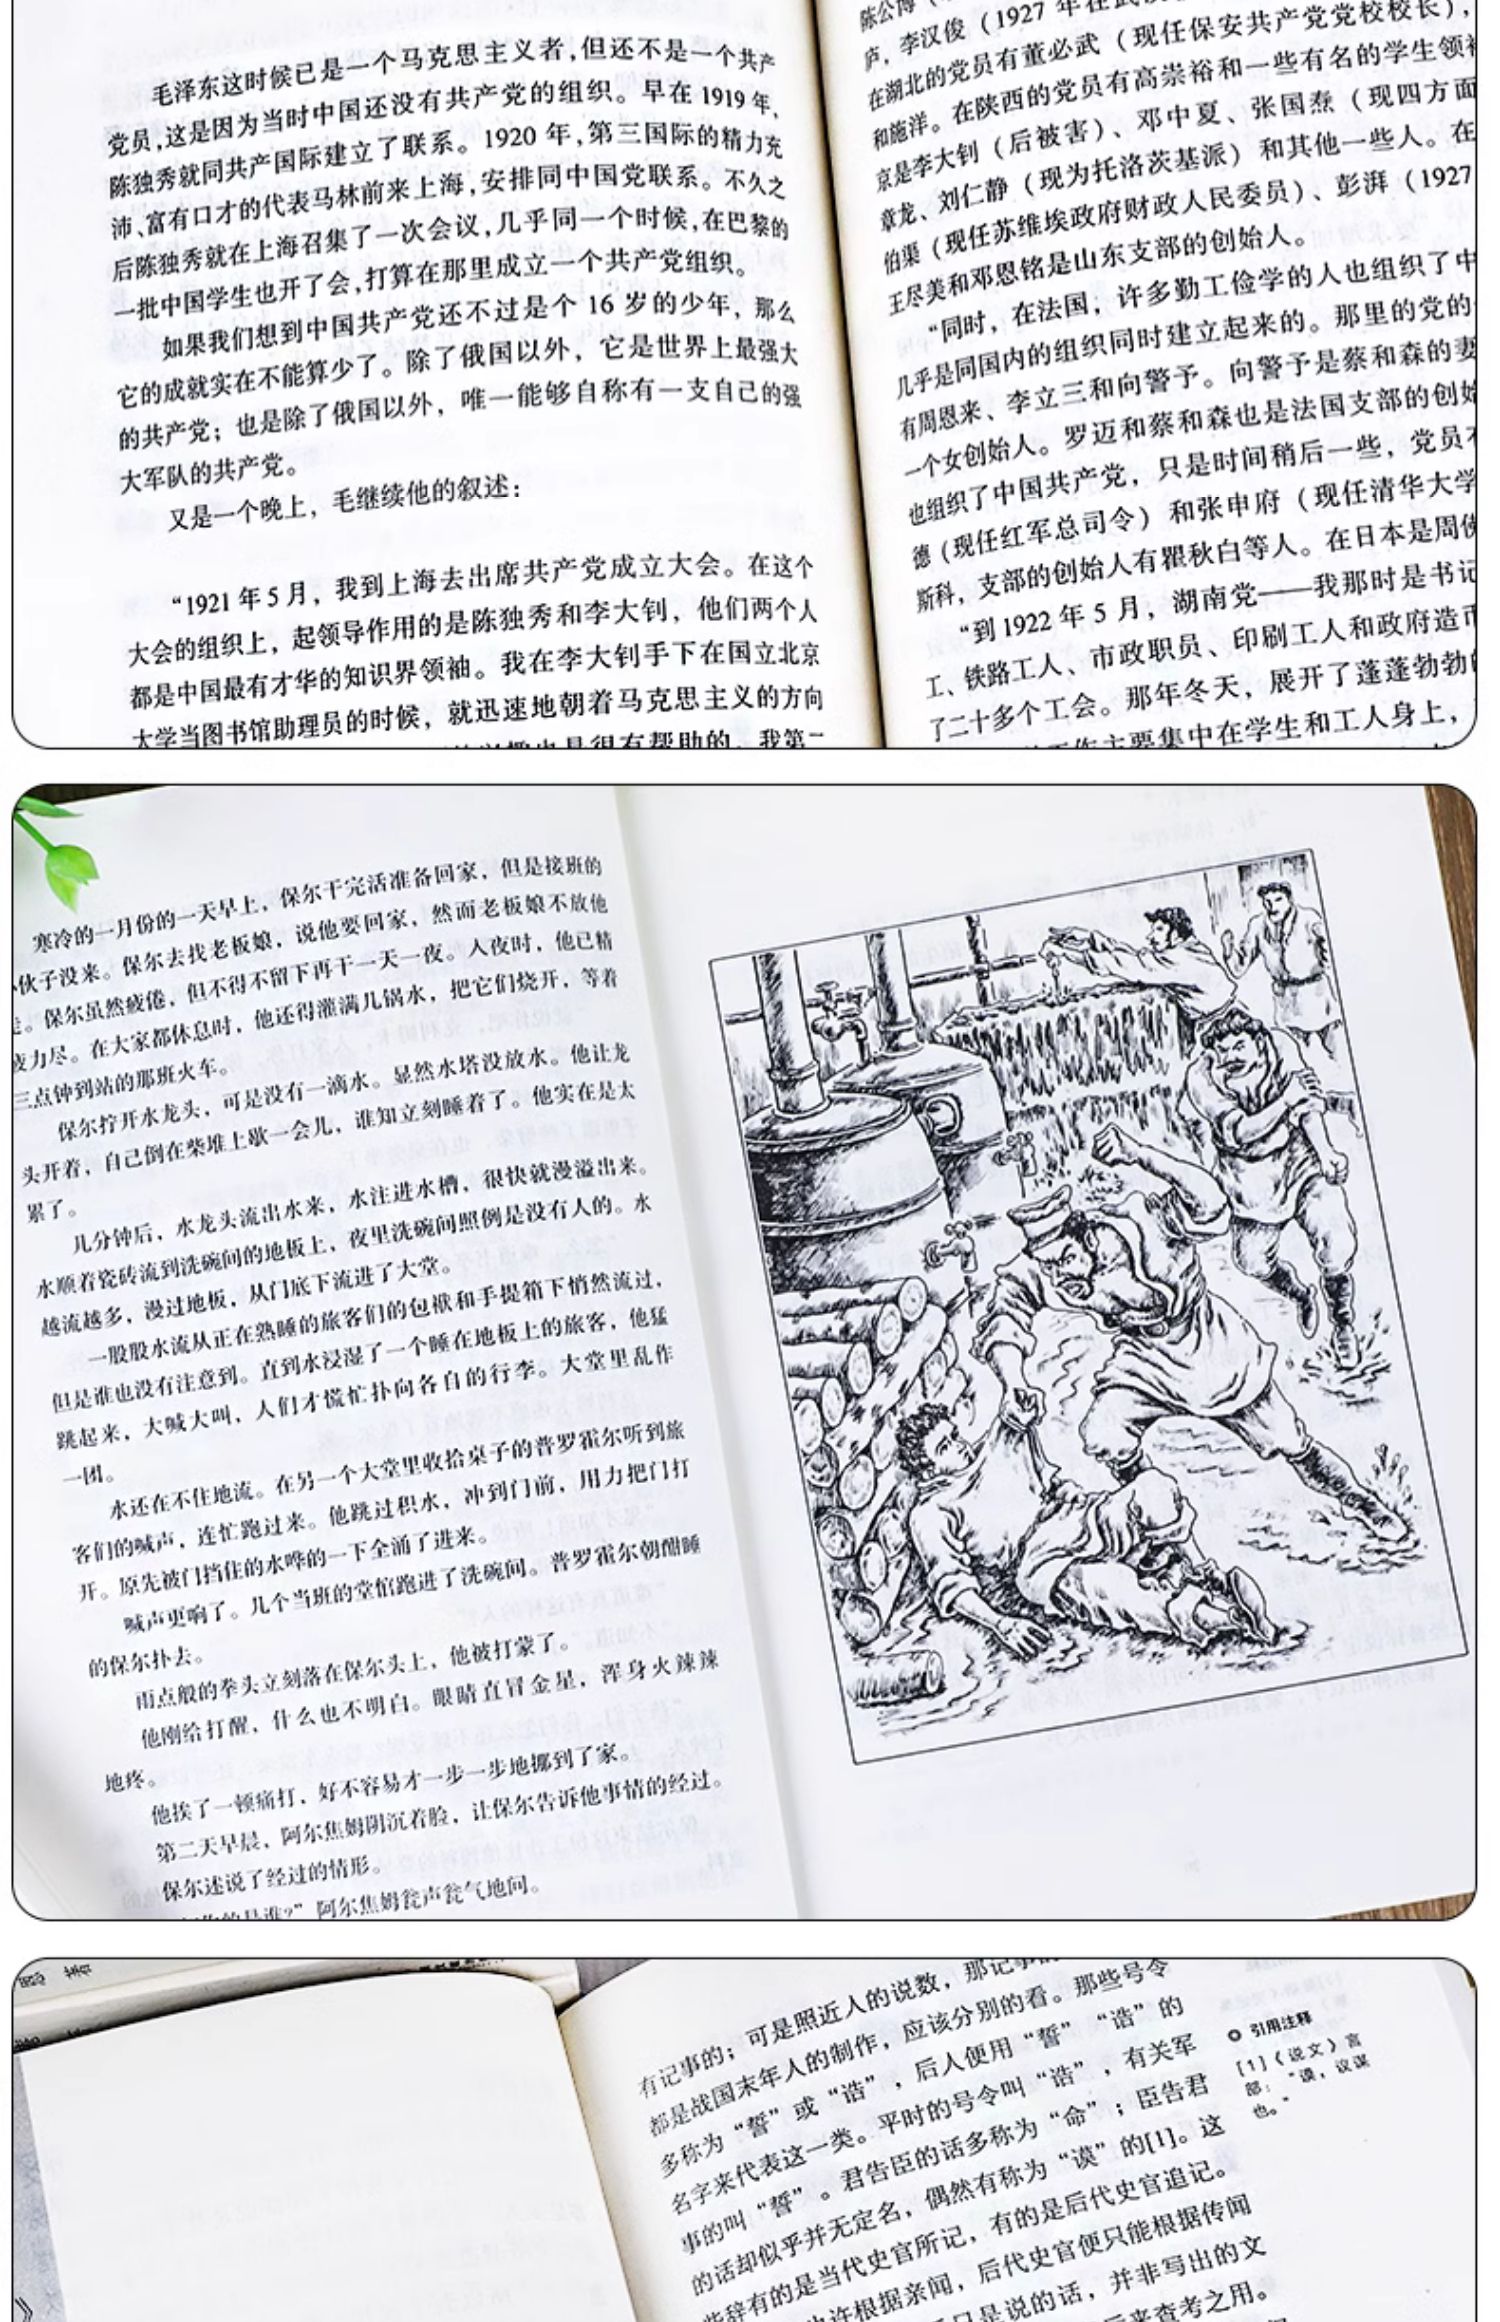 毛泽东这时候已是一个马克思主义者,但还不是一个共产
党员,这是因为当时中国还没有共产党的组织。早在1919年,
陈独秀就同共产国际建立了联系。1920年,第三国际的精力充
沛、富有口才的代表马林前来上海,安排同中国党联系。不久之
后陈独秀就在上海召集了一次会议,几乎同一个时候,在巴黎的
一批中国学生也开了会,打算在那里成立一个共产党组织。
如果我们想到中国共产党还不过是个16岁的少年,那么
它的成就实在不能算少了。除了俄国以外,它是世界上最强大
的共产党;也是除了俄国以外,唯一能够自称有一支自己的强
大军队的共产党。
又是一个晚上,毛继续他的叙述:
“1921年5月,我到上海去出席共产党成立大会。在这个
大会的组织上,起领导作用的是陈独秀和李大钊,他们两个人
都是中国最有才华的知识界领袖。我在李大钊手下在国立北京
大学当图书馆助理员的时候,就迅速地朝着马克思主义的方向
也是很有帮助的。我第一
陈公博
庐,李汉俊(1927年在武
在湖北的党员有董必武(现任保安共产党党校校长),
和施洋。在陕西的党员有高崇裕和一些有名的学生领
京是李大钊(后被害)、邓中夏、张国焘(现四方面
章龙、刘仁静(现为托洛茨基派)和其他一些人。在
伯渠(现任苏维埃政府财政人民委员)、彭湃(1927
王尽美和邓恩铭是山东支部的创始人。
“同时,在法国,许多勤工俭学的人也组织了中
几乎是同国内的组织同时建立起来的。那里的党的
有周恩来、李立三和向警予。向警予是蔡和森的妻
一个女创始人。罗迈和蔡和森也是法国支部的创始
也组织了中国共产党,只是时间稍后一些,党员
德(现任红军总司令)和张申府(现任清华大学
斯科,支部的创始人有瞿秋白等人。在日本是周佛
“到1922年5月,湖南党——我那时是书记
工、铁路工人、市政职员、印刷工人和政府造币
了二十多个工会。那年冬天,展开了蓬蓬勃勃
工作主要集中在学生和工人身上,
寒冷的一月份的一天早上,保尔干完活准备回家,但是接班的
小伙子没来。保尔去找老板娘,说他要回家,然而老板娘不放他
走。保尔虽然疲倦,但不得不留下再干一天一夜。入夜时,他已精
疲力尽。在大家都休息时,他还得灌满几锅水,把它们烧开,等着
三点钟到站的那班火车。
保尔拧开水龙头,可是没有一滴水。显然水塔没放水。他让龙
头开着,自己倒在柴堆上歇一会儿,谁知立刻睡着了。他实在是太
累了。
几分钟后,水龙头流出水来,水注进水槽,很快就漫溢出来。
水顺着瓷砖流到洗碗间的地板上,夜里洗碗间照例是没有人的。水
越流越多,漫过地板,从门底下流进了大堂。
一股股水流从正在熟睡的旅客们的包袱和手提箱下悄然流过,
但是谁也没有注意到。直到水浸湿了一个睡在地板上的旅客,他猛
跳起来,大喊大叫,人们才慌忙扑向各自的行李。大堂里乱作
一团。
水还在不住地流。在另一个大堂里收拾桌子的普罗霍尔听到旅
客们的喊声,连忙跑过来。他跳过积水,冲到门前,用力把门打
开。原先被门挡住的水哗的一下全涌了进来。
喊声更响了。几个当班的堂倌跑进了洗碗间。普罗霍尔朝酣睡
的保尔扑去。
雨点般的拳头立刻落在保尔头上,他被打蒙了。
他刚给打醒,什么也不明白。眼睛直冒金星,浑身火辣辣
地疼。
他挨了一顿痛打,好不容易才一步一步地挪到了家。
第二天早晨,阿尔焦姆阴沉着脸,让保尔告诉他事情的经过。
保尔述说了经过的情形。
的是谁?”阿尔焦姆瓮声瓮气地问。
有记事的;可是照近人的说数,那记事
都是战国末年人的制作,应该分别的看。那些号令
多称为“誓”或“诰”,后人便用“誓”“诰”的
名字来代表这一类。平时的号令叫“诰”,有关军
事的叫“誓”。君告臣的话多称为“命”;臣告君
的话却似乎并无定名,偶然有称为“谟”的[1]。这
些辞有的是当代史官所记,有的是后代史官追记。
许根据亲闻,后代史官便只能根据传闻
只是说的话,并非写出的文
来查考之用。
引用注释
[1]《说文》言
部:“谟,议谋
也。”